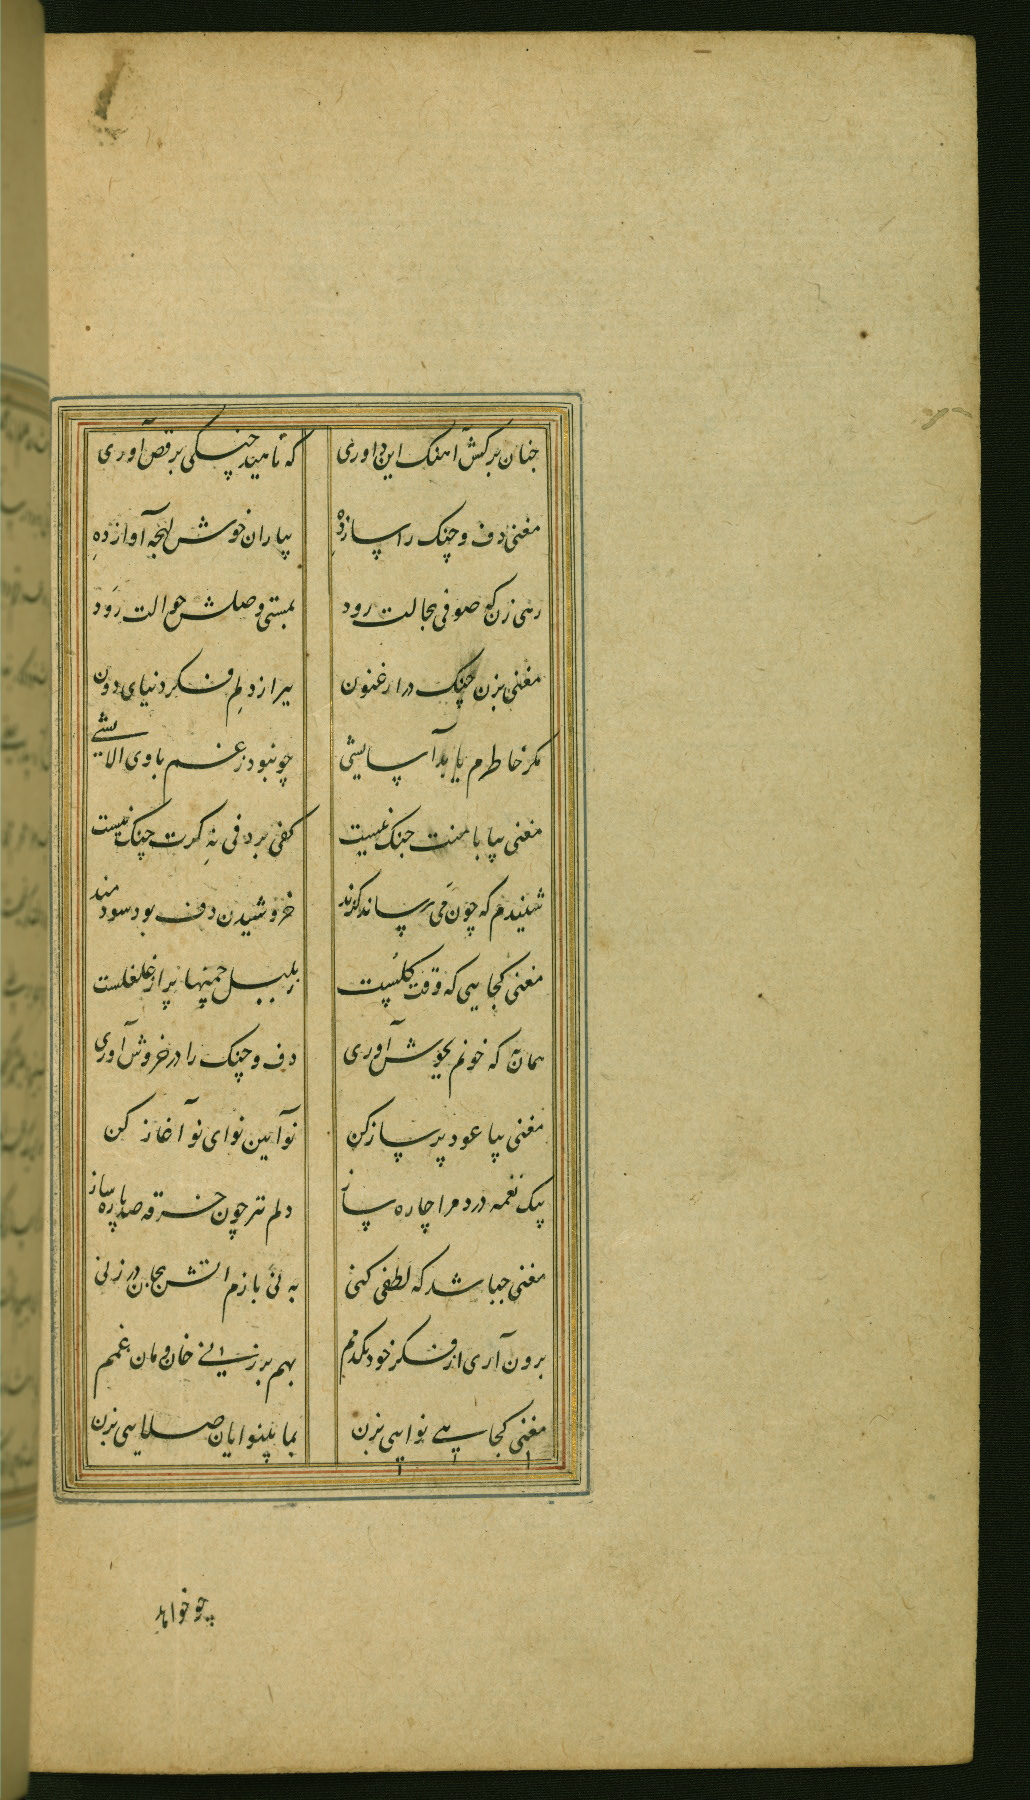 چنان برکش آهنک این داوری
که ناهید چنکی برقص آوری
مغنی دف و چنک را ساز ده
بیاران خوش لهجه آواز ده
رهی زن که صوفی بحالت رود
بمستی وصلش حوالت رود
مغنی بزن چنک در ارغنون
ببر از دلم فکر دنیای دون
مکر خاطرم یابد آسایشی
چو نبود ز غم با وی آلایشی
مغنی بیا با منت جنک نیست
کفی بر دفی نه کرت چنک نیست
شنیدم که چون می رساند کزند
خروشیدن دف بود سودمند
مغنی کجایی که وقت کلست
ز بلبل چمنها پر از غلغلست
همان به که خونم بجوش آوری
دف و چنک را در خروش آوری
مغنی بیا عود بر ساز کن
نو آیین نوای نو آغاز کن
بیک نغمه درد مرا چاره ساز
دلم نیز چون خرقه صد پاره ساز
مغنی چه باشد که لطفی کنی
به نی بازم آتش بجان در زنی
برون آری از فکر خود یکدمم
بهم بر زنی خان و مان غمم
مغنی کجایی نوایی بزن
بما بینوایان صلایی بزن
چو خواهد